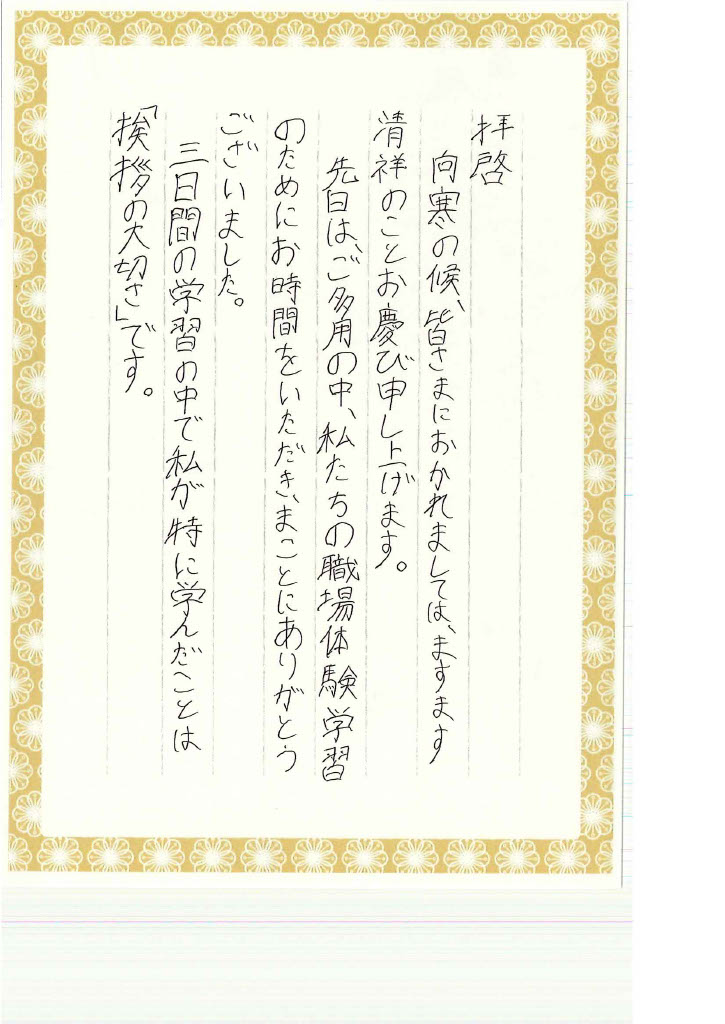 拝啓
向寒の候、皆さまにおかれましては、ますます
清祥のことお慶び申し上げます。
先日は、ご多用の中、私たちの職場体験学習
のためにお時間をいただき、まことにありがとう
ございました。
三日間の学習の中で私が特に学んだことは
「挨拶の大切さ」です。